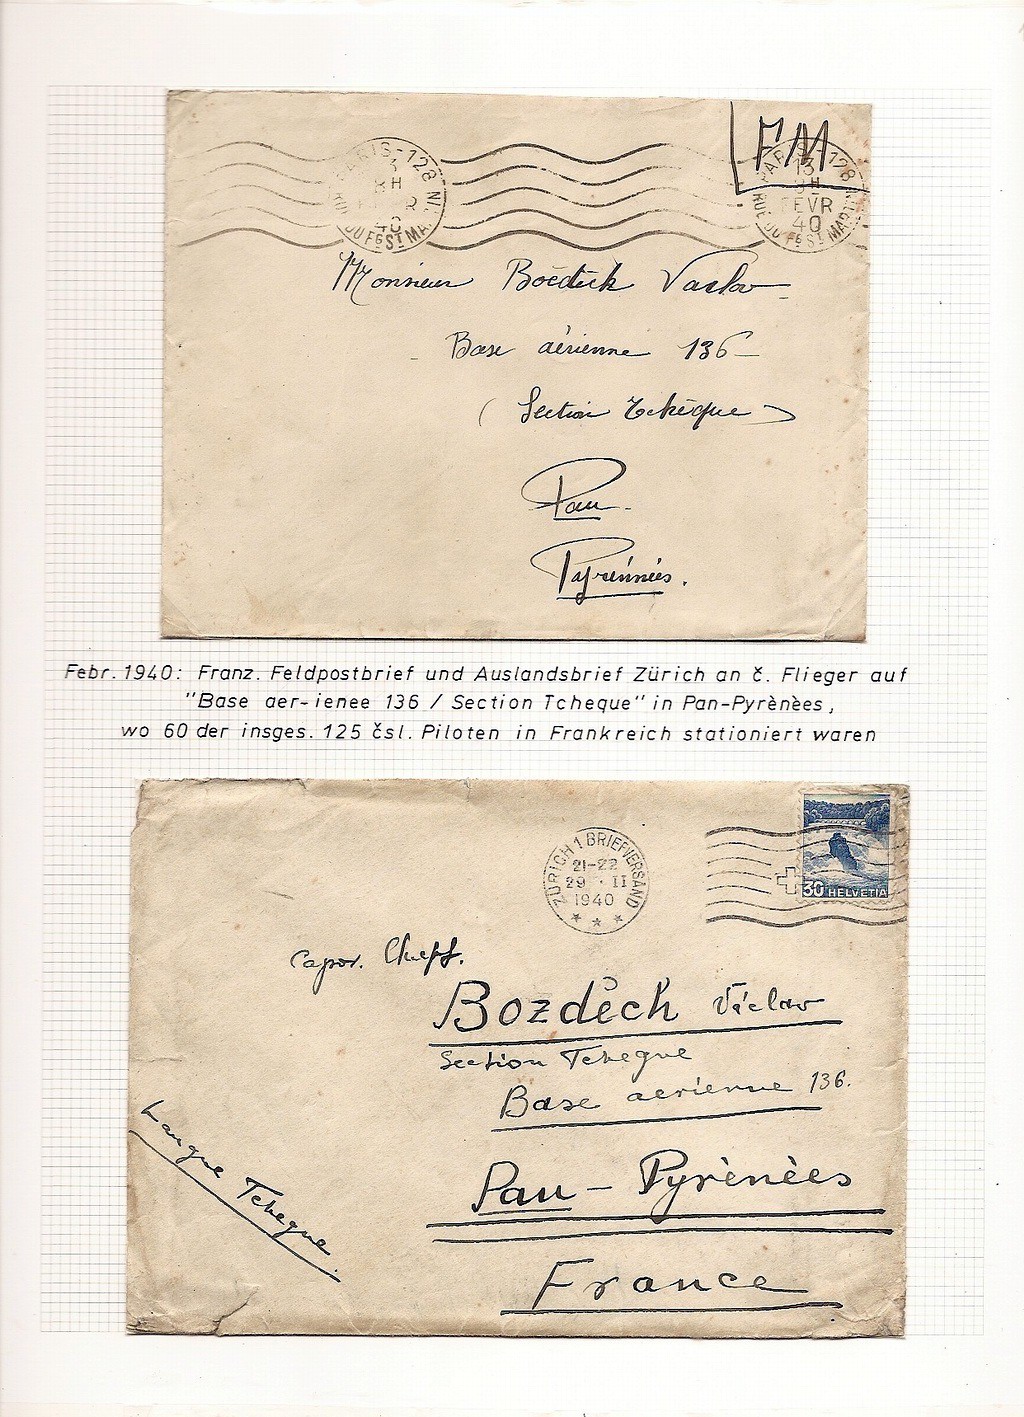 FM
PARIS-128
RUE DU FG ST MARTIN
13
8H
FEVR
40
Monsieur Boëdeck Vaclav
Base aérienne 136
(Section Tchèque)
Pau.
Pyrénnées.
Febr. 1940: Franz. Feldpostbrief und Auslandsbrief Zürich an č. Flieger auf
"Base aer-ienee 136 / Section Tcheque" in Pan-Pyrènèes,
wo 60 der insges. 125 čsl. Piloten in Frankreich stationiert waren
ZÜRICH 1 BRIEFVERSAND
21-22
29 · II
1940
30 HELVETIA
Capor. Cheff.
Bozděch Václav
Section Tcheque
Base aerienne 136.
Langue Tcheque.
Pau - Pyrènèes
France